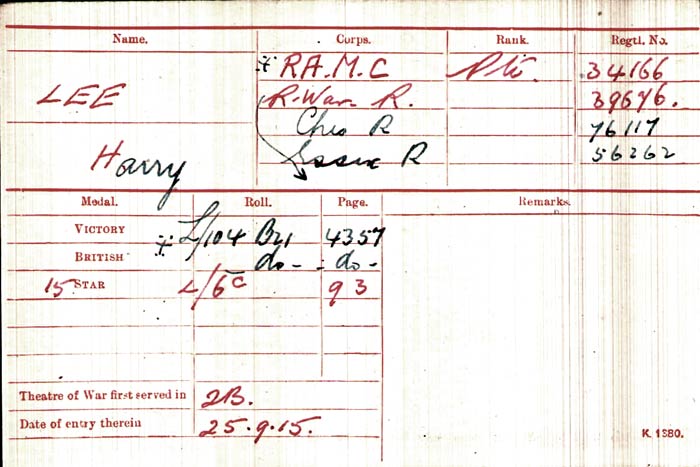 Name. Corps. Rank. Regtl. No.
R.A.M.C Pte. 34166
LEE R. War. R. 39676.
Ches R 76117
Harry Essex R 56262
Medal. Roll. Page. Remarks.
VICTORY L/104 B21 4357
BRITISH do - - do -
15 STAR L/6C 93
Theatre of War first served in 2B.
Date of entry therein 25.9.15.
K. 1380.